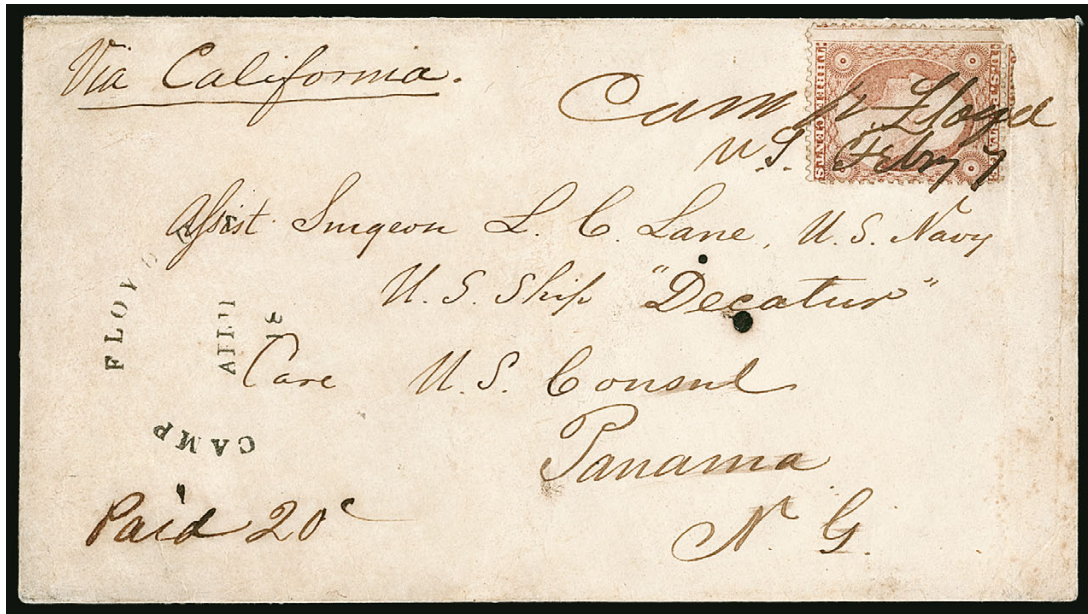 Via California.
Camp Floyd
U.S. Febry 7
THREE CENTS
U.S.
Assist Surgeon L. C. Lane, U.S. Navy
U.S. Ship "Decatur"
Care U.S. Consul
Panama
N. G.
CAMP FLOYD
Paid 20c